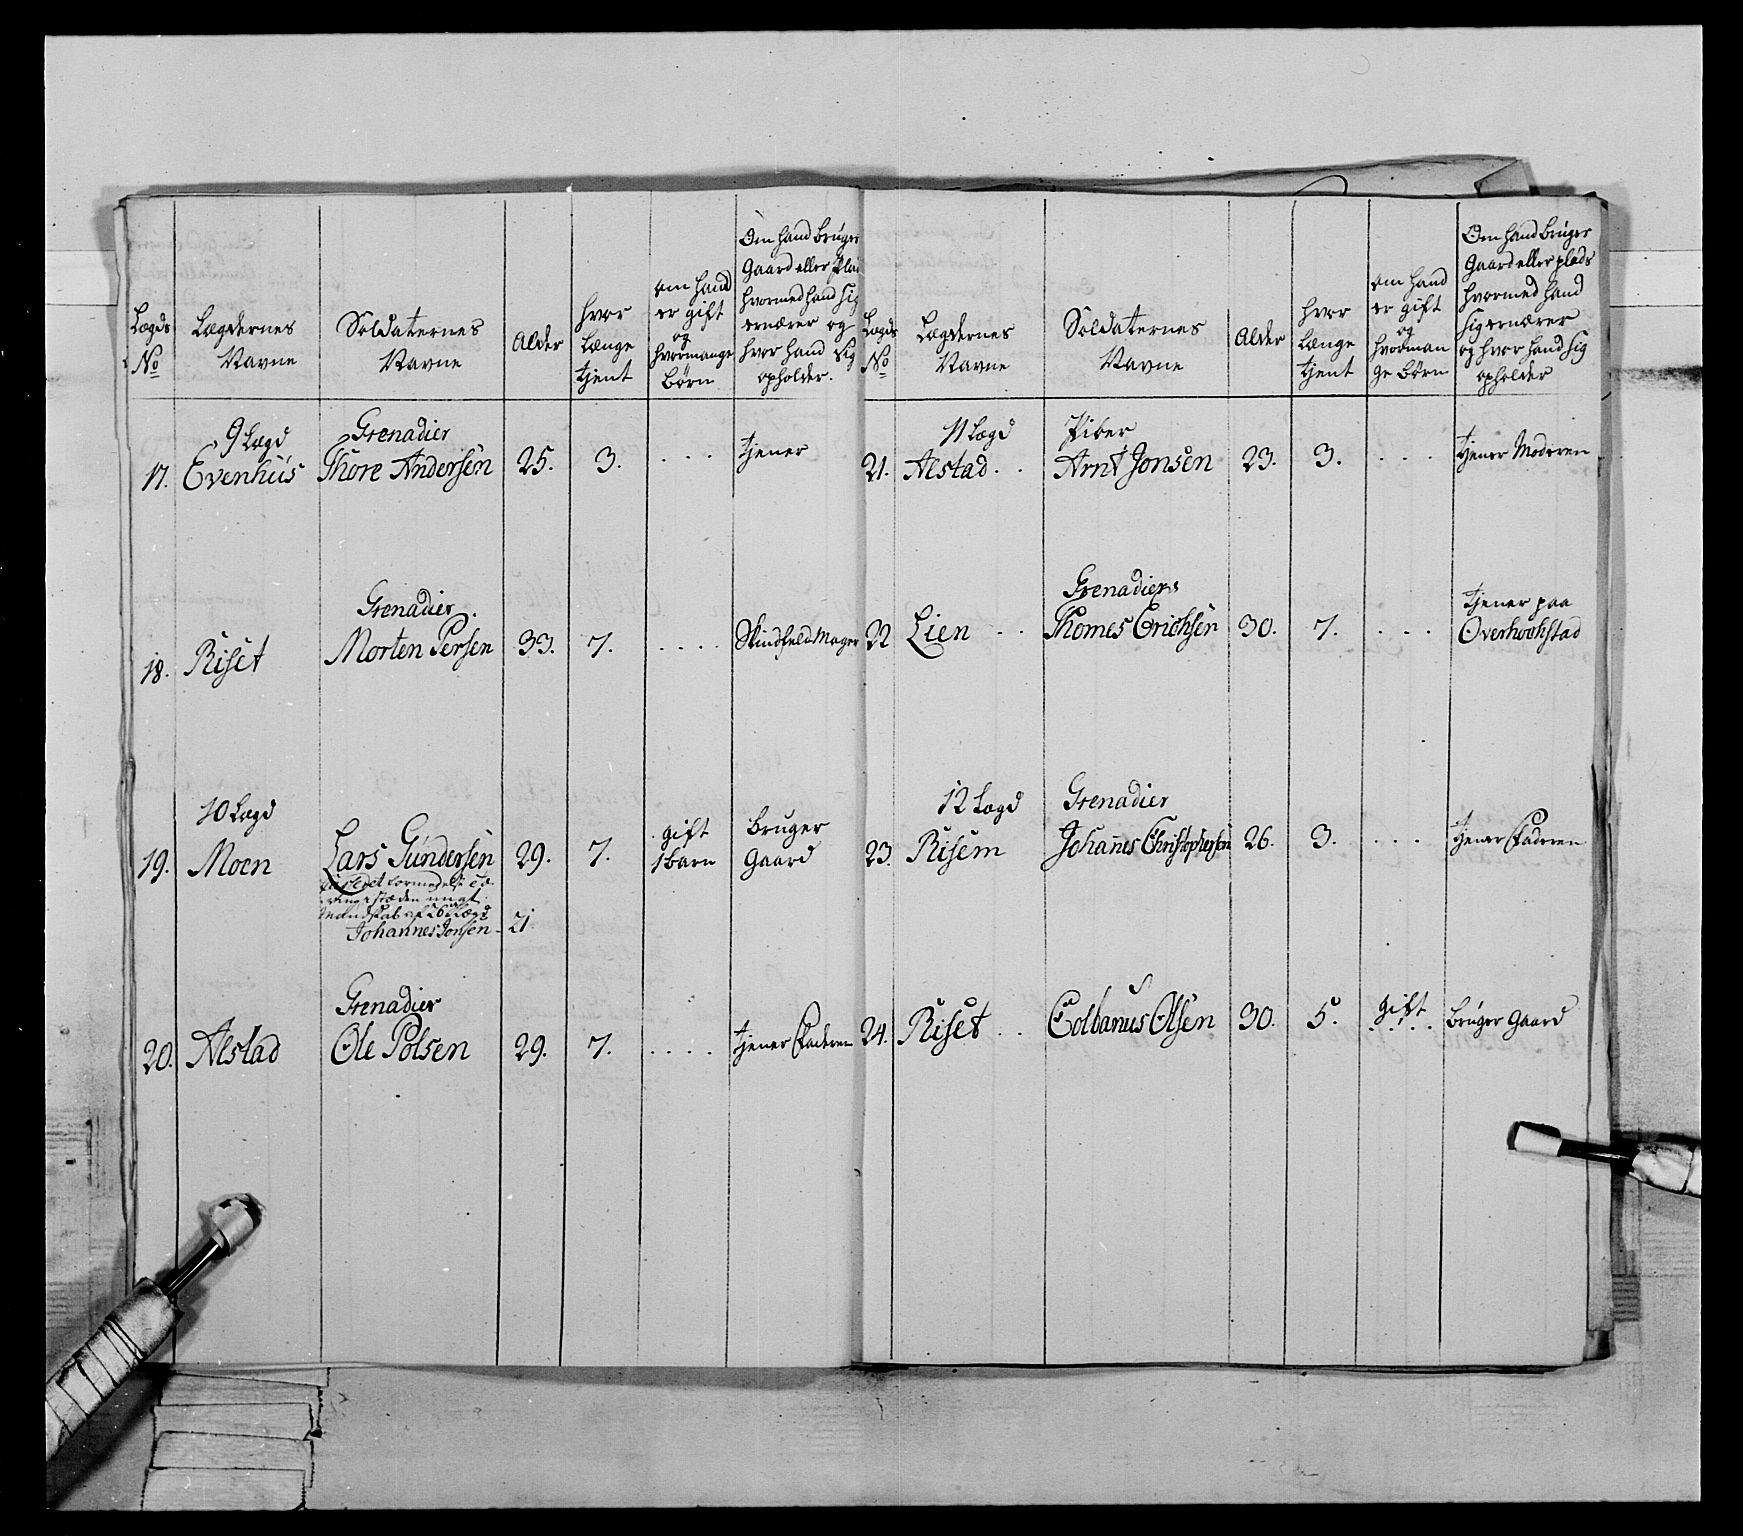 Lægds
No
Lægdernes
Navne
Soldaternes
Navne
Alder
hvor
længe
tjent
om hand
er gift
og
hvormange
børn
Om hand bruger
Gaard eller Plads
hvormed hand sig
ernærer og
hvor hand sig
opholder.
9 Lægd
Grenadier
17. Evenhus Thore Andersen 25. 3. .... tjener
Grenadier.
18. Riset Morten Persen 33. 7. .... Skindfeld Mager
10 Lægd
gift
bruger
19. Moen Lars Gundersen 29. 7. 1 barn Gaard
Johannes Jonsen - 21
Grenadier
20. Alstad Ole Polsen 29. 7. .... tjener Faderen
Lægds
No
Lægdernes
Navne
Soldaternes
Navne
Alder
hvor
længe
tjent
om hand
er gift
og
hvorman
ge børn
Om hand bruger
Gaard eller plads
hvormed hand
sig ernærer
og hvor hand sig
opholder
11 Lægd
Piber
21. Alstad . . Arnt Jonsen 23. 3. ... tjener Moderen
Grenadier
tjener paa
22 Lien . . Thomes Erichsen 30. 7. ... Overhochstad
12 Lægd
Grenadier
23. Risem Johanes Christophersen 26. 3. ... tjener Faderen
24. Riset . . Colbanus Olsen 30. 5. gift .... bruger Gaard